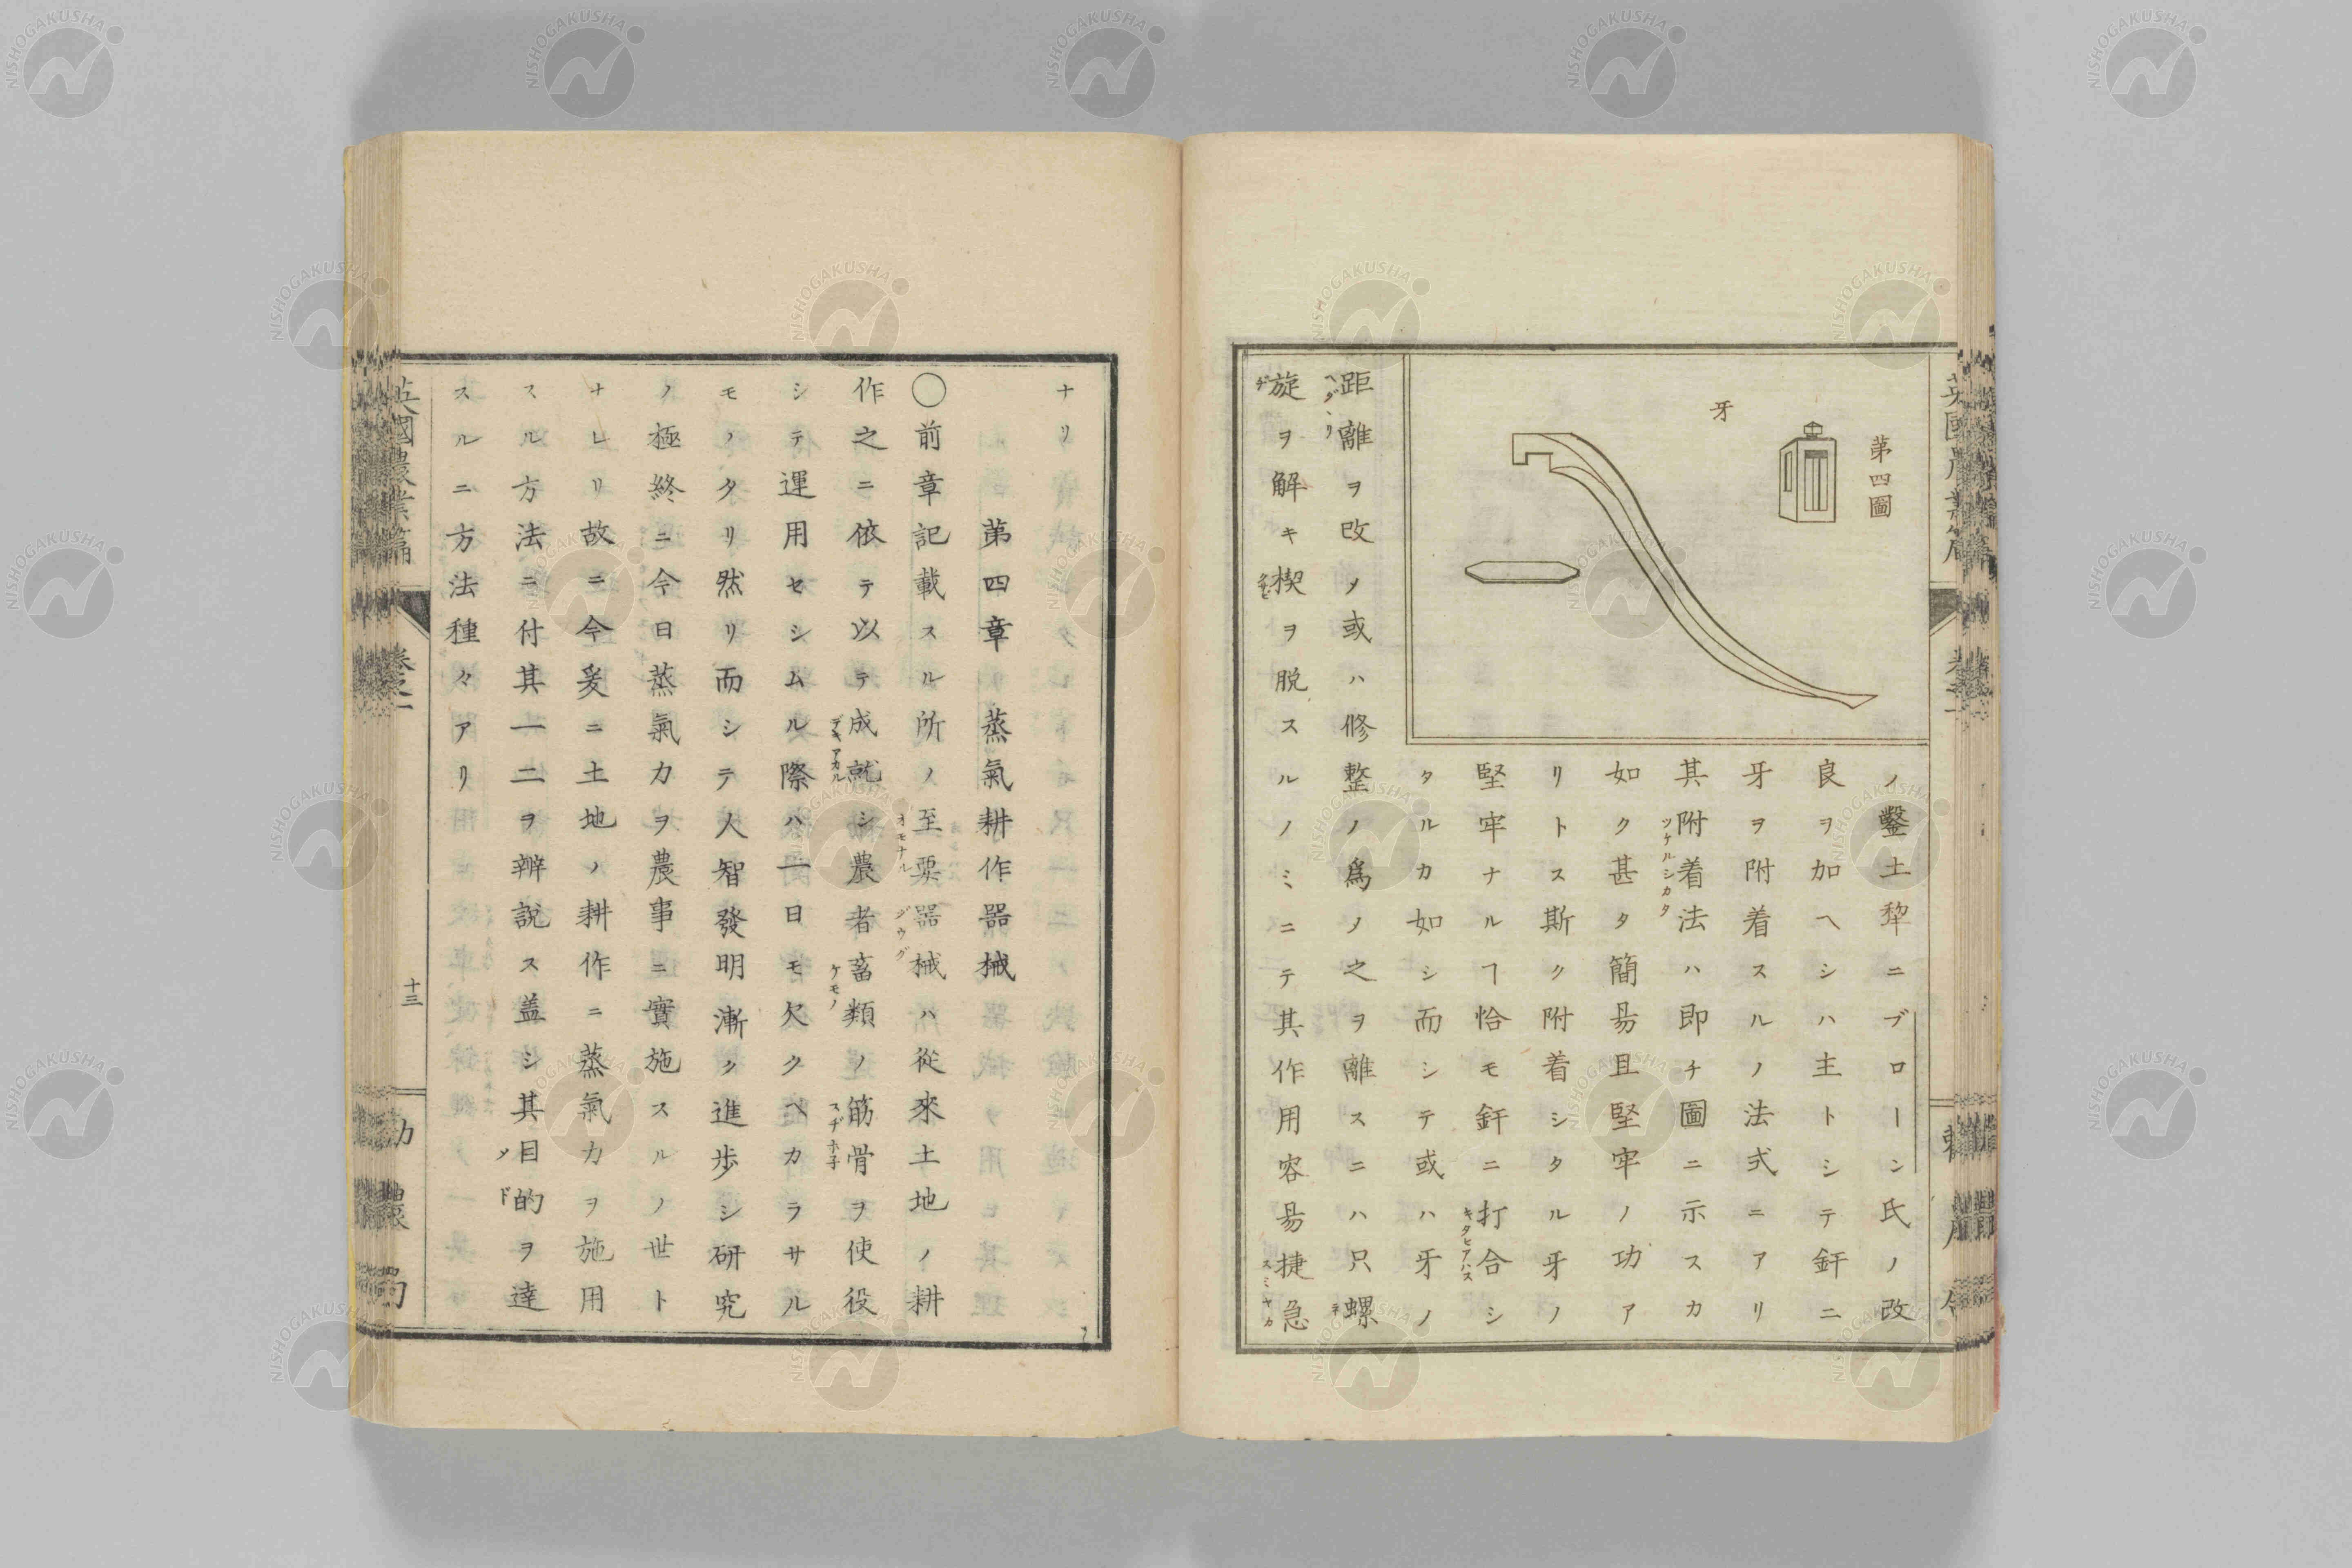 第四圖
牙
ノ鑿土犂ニブローン氏ノ改
良ヲ加ヘシハ主トシテ釬ニ
牙ヲ附着スルノ法式ニアリ
其附着法ハ即チ圖ニ示スカ
ツケルシカタ
如ク甚タ簡昜且堅牢ノ功ア
リトス斯ク附着シタル牙ノ
堅牢ナルヿ恰モ釬ニ打合シ
キタヒアハス
タルカ如シ而シテ或ハ牙ノ
距離ヲ改メ或ハ修整ノ爲メ之ヲ離スニハ只螺
旋ヲ解キ楔ヲ脱スルノミニテ其作用容昜捷急
スミヤカ
ナリ
第四章 蒸氣耕作器械
〇前章記載スル所ノ至要器械ハ從來土地ノ耕
オモナル
ジウグ
作之ニ依テ以テ成就シ農者畜類ノ筋骨ヲ使役
デキアカル
ケモノ
スヂホ子
シテ運用セシムル際ハ一日モ欠クヘカラサル
モノタリ然リ而シテ人智發明漸ク進歩シ研究
ノ極終ニ今日蒸氣力ヲ農事ニ實施スルノ世ト
ナレリ故ニ今爰ニ土地ノ耕作ニ蒸氣力ヲ施用
スル方法ニ付其一二ヲ辨説ス盖シ其目的ヲ達
メド
スルニ方法種々アリ
英國農業篇
卷之二
十三
勸農局
NISHOGAKUSHA